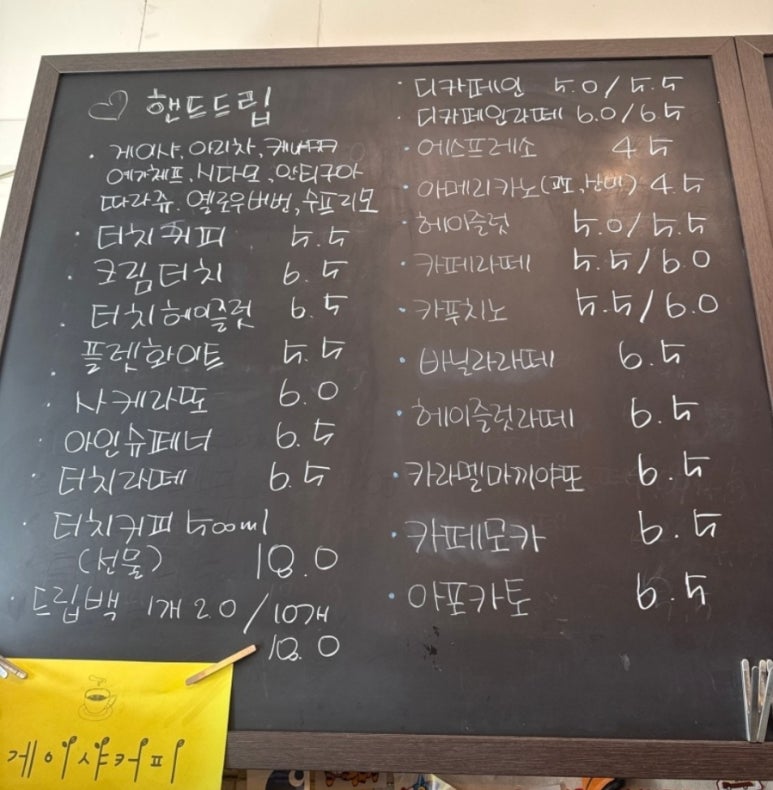 핸드드립
· 게이샤, 아리차, 케냐
예가체프, 시다모, 안티구아
따라쥬, 옐로우버번, 수프리모
· 터치커피 5.5
· 크림터치 6.5
· 터치헤이즐럿 6.5
· 플렛화이트 5.5
· 사케라또 6.0
· 아인슈페너 6.5
· 터치라떼 6.5
· 터치커피 500ml
(선물) 18.0
· 드립백 1개 2.0 / 10개
18.0
게이샤커피
· 디카페인 5.0/5.5
· 디카페인라떼 6.0/6.5
· 에스프레소 4.5
· 아메리카노 4.5
· 헤이즐럿 5.0/5.5
· 카페라떼 5.5/6.0
· 카푸치노 5.5/6.0
· 바닐라라떼 6.5
· 헤이즐럿라떼 6.5
· 카라멜마끼야또 6.5
· 카페모카 6.5
· 아포카토 6.5